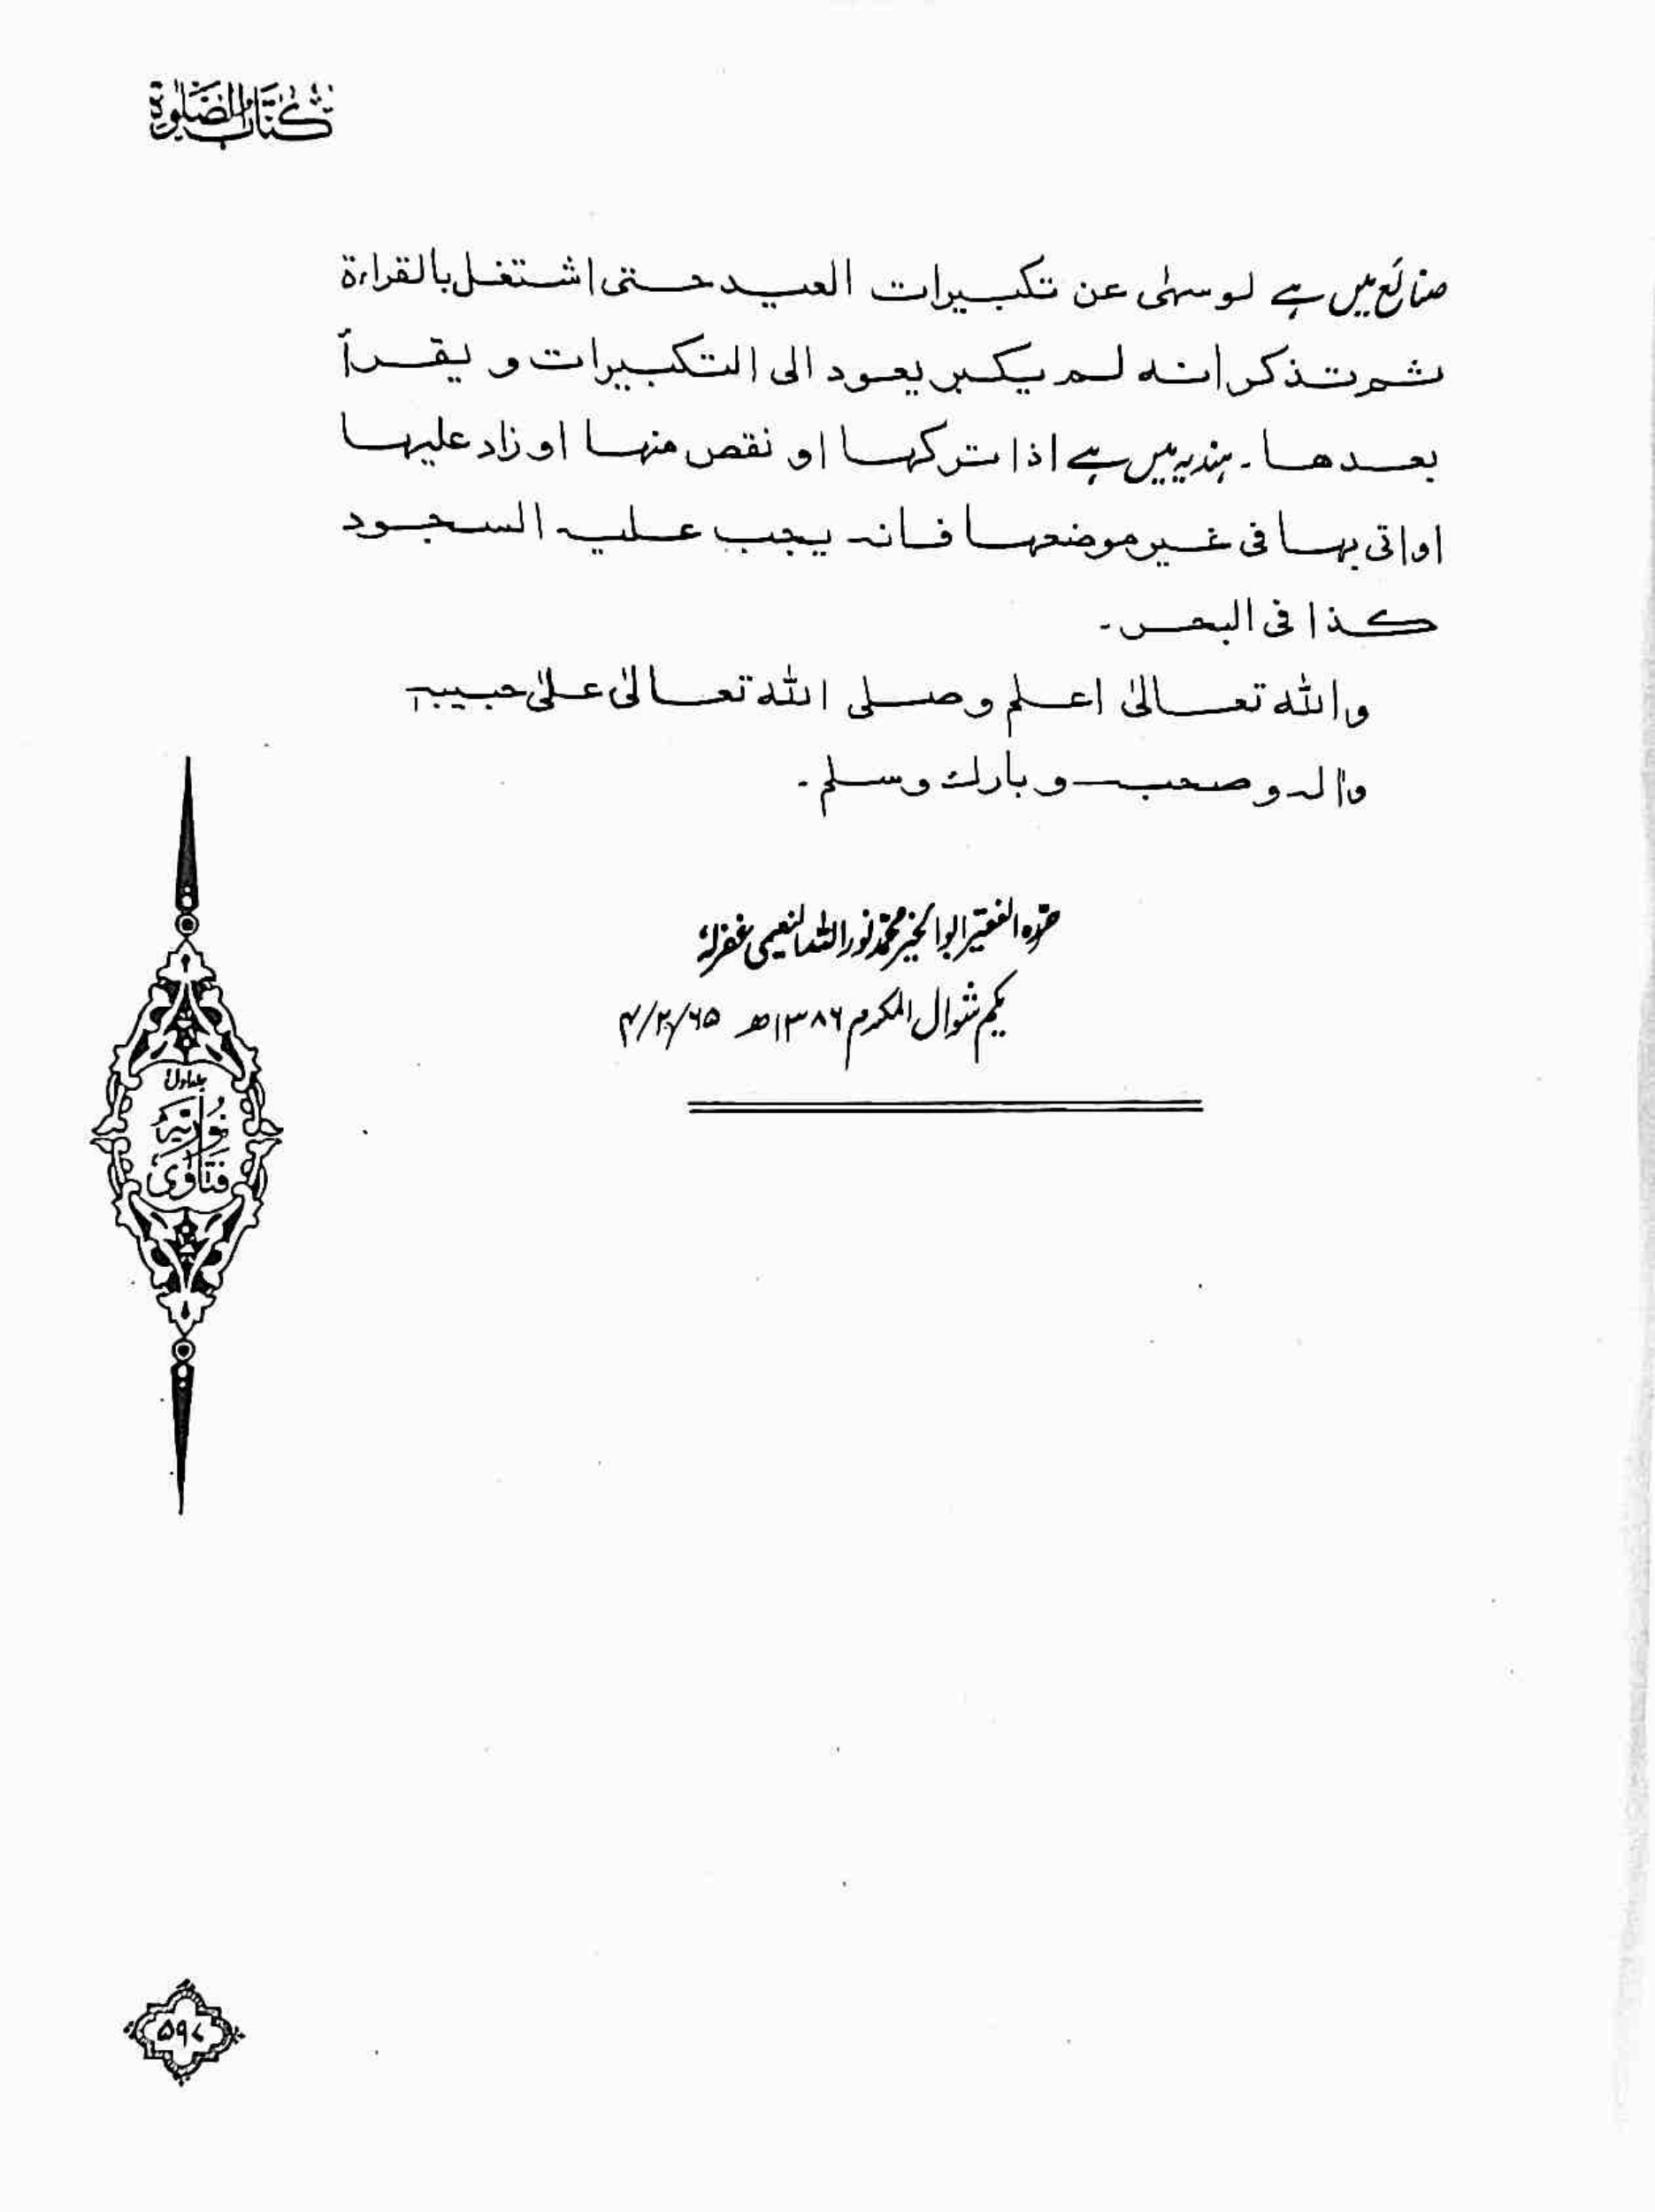 کتاب الصلوٰۃ
صنائع میں ہے لو سہٰی عن تکبیرات العید حتی اشتغل بالقراءۃ
ثم تذکر انہ لم یکبر یعود الی التکبیرات و یقرأ
بعدھا۔ ہندیہ میں ہے اذا ترکہا او نقص منہا او زاد علیہا
او اتی بہا فی غیر موضعہا فانہ یجب علیہ السجود
کذا فی البحر۔
واللہ تعالیٰ اعلم وصلی اللہ تعالیٰ علیٰ حبیبہٖ
واٰلہ وصحبہ وبارک وسلم۔
حررہ الفقیر ابوالخیر محمد نور اللہ النعیمی غفرلہٗ
یکم شوال المکرم ۱۳۸۶ھ ۴/۲/۶۵
جلد اول
نوریہ
فتاوٰی
۵۹۷